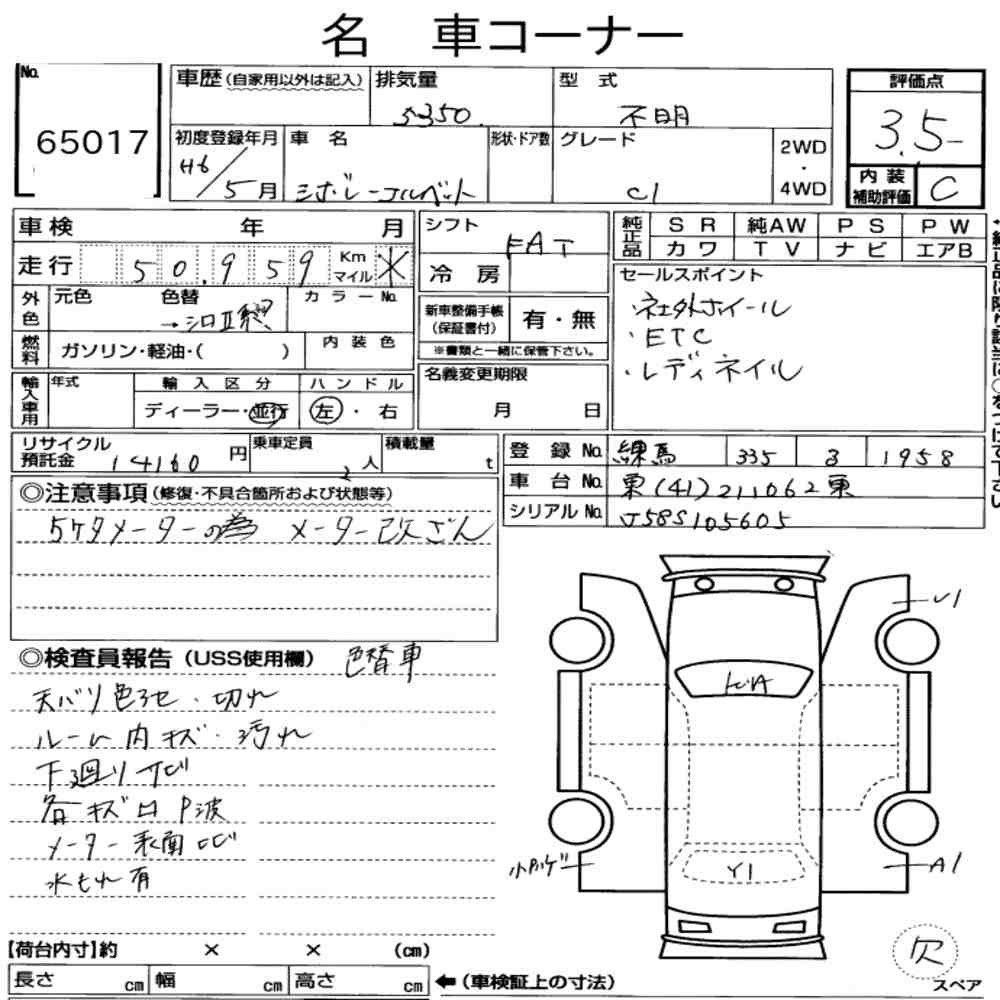 名 車コーナー
No.
65017
車歴(自家用以外は記入)
排気量
5350
型 式
不明
評価点
3.5-
初度登録年月
H6/5月
車 名
シボレーコルベット
形状・ドア数
グレード
C1
2WD
・
4WD
内 装
補助評価
C
車検 年 月
走行 50,959 Km マイル ✕
外色
元色
色替
→シロⅡ
カラーNo.
燃料
ガソリン・軽油・( )
内 装 色
輸入車用
年式
輸 入 区 分
ディーラー・並行
ハ ン ド ル
左・右
シフト
FAT
冷 房
新車整備手帳
(保証書付)
有・無
※書類と一緒に保管下さい。
名義変更期限
月 日
純正品
SR 純AW PS PW
カワ TV ナビ エアB
セールスポイント
・社外ホイール
・ETC
・レディネイル
リサイクル
預託金
14160円
乗車定員
2人
積載量
t
登 録 No. 練馬 335 3 1958
車 台 No. 東(41)211062東
シリアル No. J58S105605
◎注意事項(修復・不具合箇所および状態等)
5ケタメーターの為 メーター改ざん
◎検査員報告(USS使用欄) 色替車
天バリ色アセ・切れ
ルーム内キズ・汚れ
下廻りサビ
各キズロP波
メーター表面ヒビ
水もれ有
U1
ヒビA
小Pハゲ
Y1
A1
欠
スペア
【荷台内寸】約 × × (cm)
長さ cm 幅 cm 高さ cm
←(車検証上の寸法)